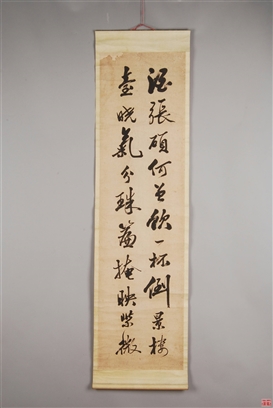 酒張碩何曾飲一杯倒景樓
臺晓氣分珠簾掩映紫微